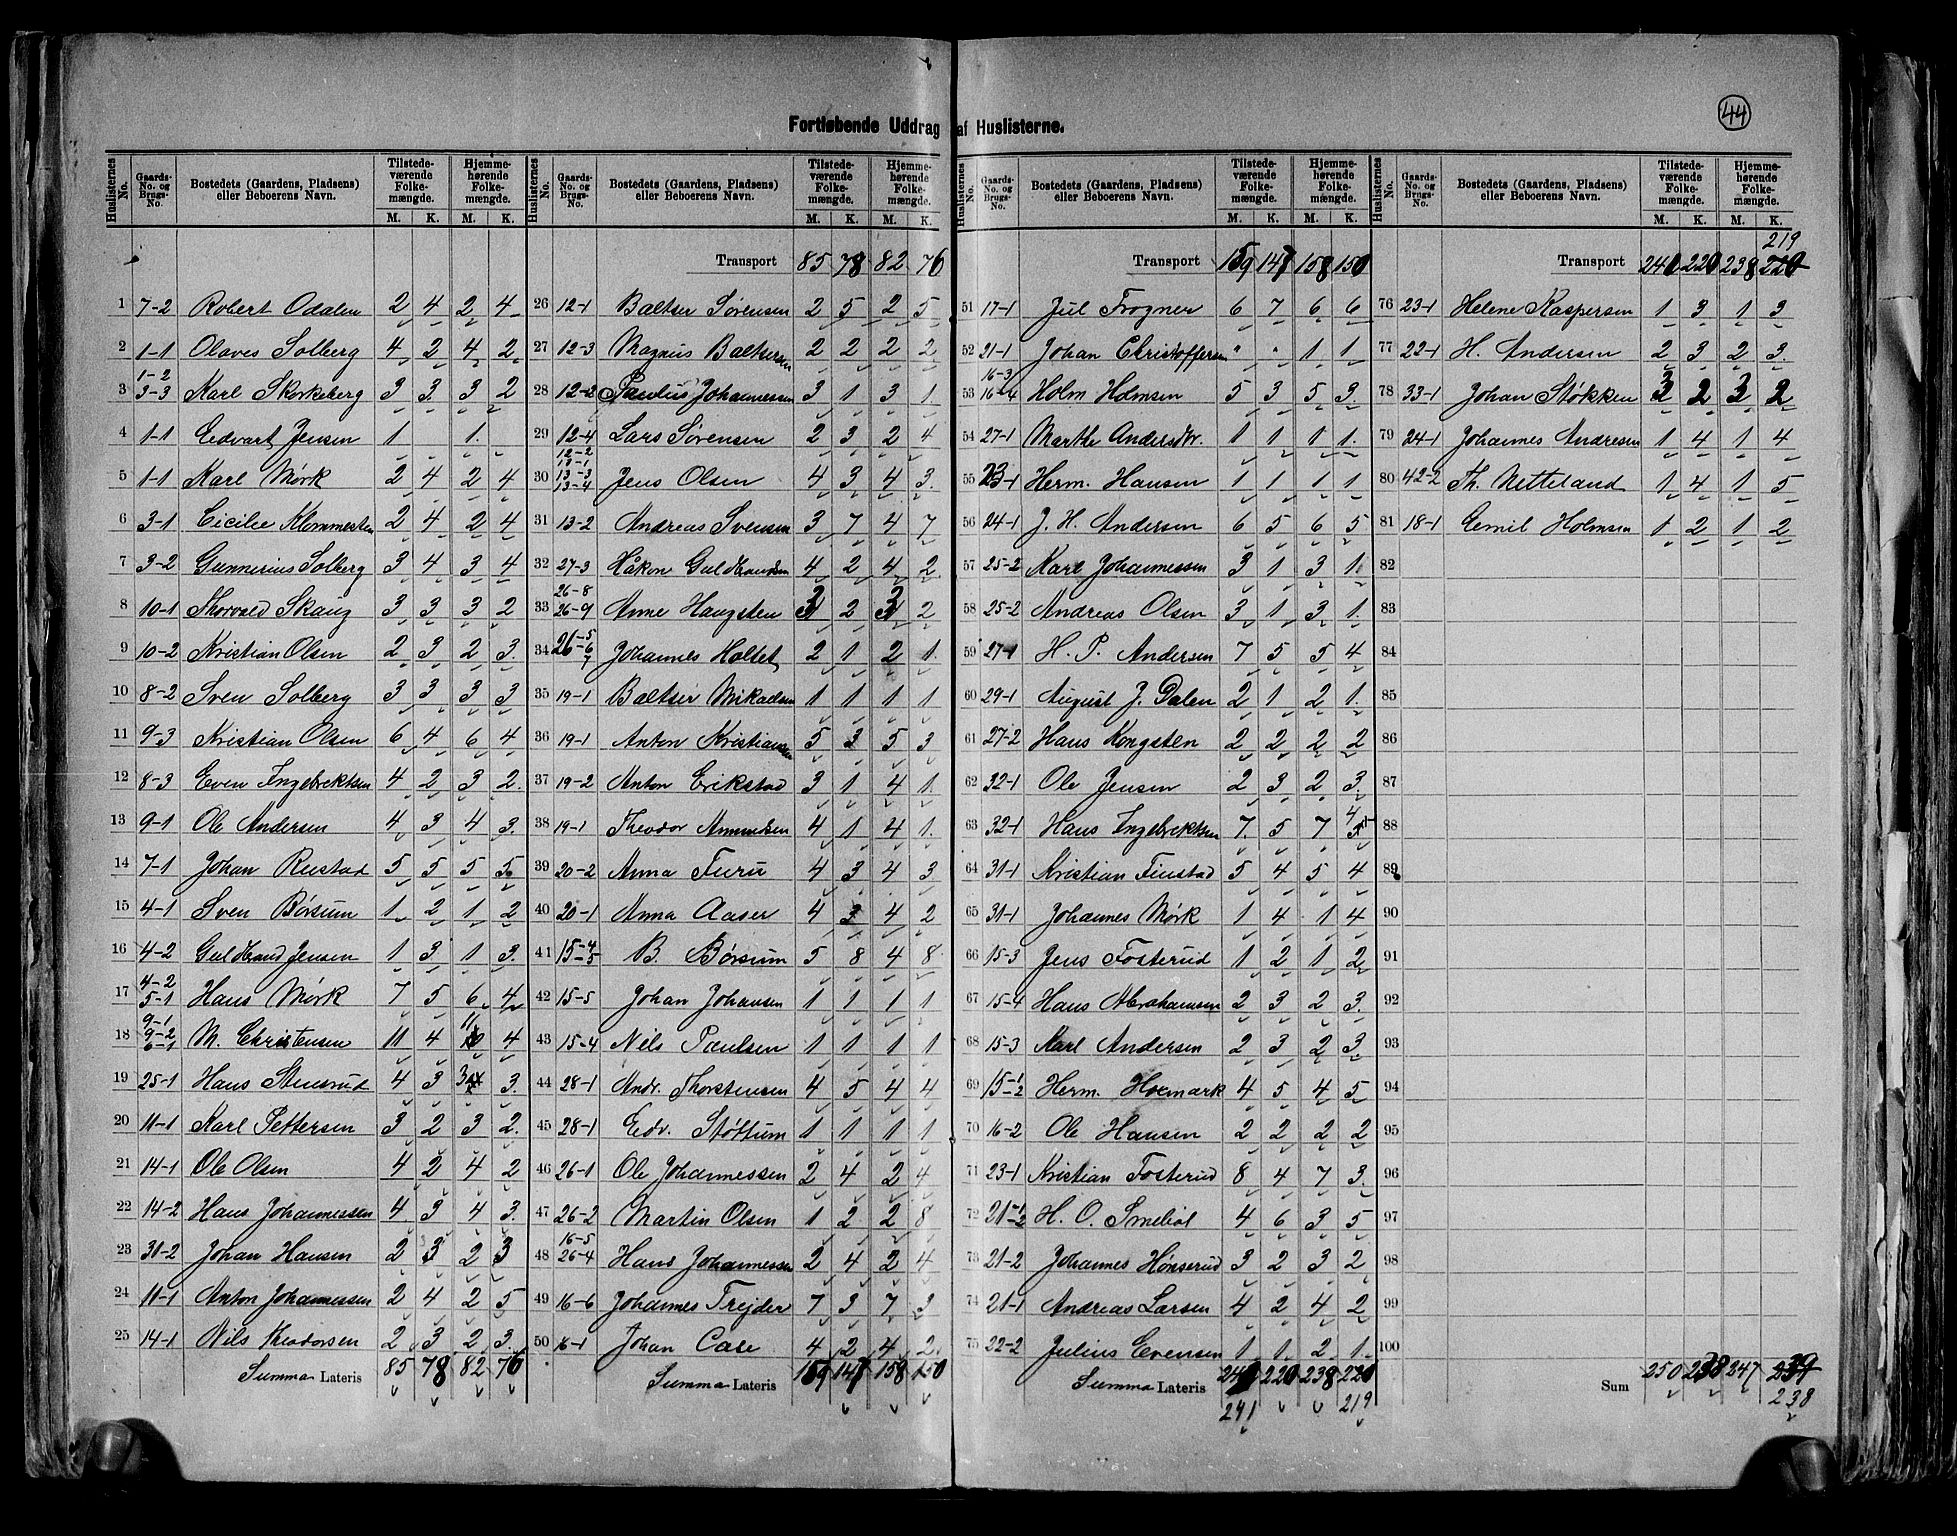 44
Fortløbende Uddrag af Huslisterne.
Huslisternes No. | Gaards-No. og Brugs-No. | Bostedets (Gaardens, Pladsens) eller Beboerens Navn. | Tilstedeværende Folkemængde. M. K. | Hjemmehørende Folkemængde. M. K.
1 7-2 Robert Odalen 2 4 2 4
2 1-1 Olaves Solberg 4 2 4 2
3 1-2 3-3 Karl Skorkeberg 3 3 3 2
4 1-1 Edvart Jensen 1 1
5 1-1 Karl Mørk 2 4 2 4
6 3-1 Cicilie Klommesten 2 4 2 4
7 3-2 Gunnerius Solberg 3 4 3 4
8 10-1 Thorvald Skaug 3 3 3 2
9 10-2 Kristian Olsen 2 3 2 3
10 8-2 Sven Solberg 3 3 3 3
11 9-3 Kristian Olsen 6 4 6 4
12 8-3 Even Ingebrektsen 4 2 3 2
13 9-1 Ole Andersen 4 3 4 3
14 7-1 Johan Rustad 5 5 5 5
15 4-1 Sven Børsum 1 2 1 2
16 4-2 Guldbrand Jensen 1 3 1 3
17 4-2 5-1 Hans Mørk 7 5 6 4
18 9-1 9-2 6-1 M. Christensen 11 4 11 4
19 25-1 Hans Stensrud 4 3 3 3
20 11-1 Karl Pettersen 3 2 3 2
21 14-1 Ole Olsen 4 2 4 2
22 14-2 Hans Johannessen 4 3 4 3
23 31-2 Johan Hansen 2 3 2 3
24 11-1 Anton Johannessen 2 4 2 5
25 14-1 Nils Theodorsen 2 3 2 3
Summa Lateris 85 78 82 76
Huslisternes No. | Gaards-No. og Brugs-No. | Bostedets (Gaardens, Pladsens) eller Beboerens Navn. | Tilstedeværende Folkemængde. M. K. | Hjemmehørende Folkemængde. M. K.
Transport 85 78 82 76
26 12-1 Baltser Sørensen 2 5 2 5
27 12-3 Magnus Baltsersen 2 2 2 2
28 12-2 Paulus Johannessen 3 1 3 1
29 12-4 Lars Sørensen 2 3 2 4
30 12-2 13-1 13-3 13-4 Jens Olsen 4 3 4 3
31 13-2 Andreas Svensen 3 7 4 7
32 27-3 Håkon Guldbrandsen 4 2 4 2
33 26-8 26-9 Anne Haugsten 3 2 3 2
34 26-5 26-6 7 Johannes Holtet 2 1 2 1
35 19-1 Baltser Mikaelsen 1 1 1 1
36 19-1 Anton Kristiansen 5 3 5 3
37 19-2 Anton Erikstad 3 1 4 1
38 19-1 Theodor Amundsen 4 1 4 1
39 20-2 Anna Furu 4 3 4 3
40 20-1 Anna Aaser 4 3 4 2
41 15-4 15-5 B. Børsum 5 8 4 8
42 15-5 Johan Johansen 1 1 1 1
43 15-4 Nils Paulsen 1 1 1 1
44 28-1 Andr. Thorstensen 4 5 4 4
45 28-1 Edv. Støttum 1 1 1 1
46 26-1 Ole Johannessen 2 4 2 4
47 26-2 Martin Olsen 1 2 2 8
48 16-5 26-4 Hans Johannessen 2 4 2 4
49 16-6 Johannes Trejder 7 3 7 3
50 16-1 Johan Case 4 2 4 2
Summa Lateris 159 147 158 150
Huslisternes No. | Gaards-No. og Brugs-No. | Bostedets (Gaardens, Pladsens) eller Beboerens Navn. | Tilstedeværende Folkemængde. M. K. | Hjemmehørende Folkemængde. M. K.
Transport 159 147 158 150
51 17-1 Jul Frogner 6 7 6 6
52 21-1 Johan Christoffersen " " 1 1
53 16-3 16-4 Holm Holmsen 5 3 5 3
54 27-1 Marthe Andersdtr. 1 1 1 1
55 23-1 Herm. Hansen 1 1 1 1
56 24-1 J. H. Andersen 6 5 6 5
57 25-2 Karl Johannessen 3 1 3 1
58 25-2 Andreas Olsen 3 1 3 1
59 27-1 H. P. Andersen 7 5 5 4
60 29-1 August J. Dalen 2 1 2 1
61 27-2 Hans Kongsten 2 2 2 2
62 32-1 Ole Jensen 2 3 2 3
63 32-1 Hans Ingebrektsen 7 5 7 4
64 31-1 Kristian Finstad 5 4 5 4
65 31-1 Johannes Mørk 1 4 1 4
66 15-3 Jens Fosterud 1 2 1 2
67 15-4 Hans Abrahamsen 2 3 2 3
68 15-3 Karl Andersen 2 3 2 3
69 15-1 2 Herm. Hoxmark 4 5 4 5
70 16-2 Ole Hansen 2 2 2 2
71 23-1 Kristian Fosterud 8 4 7 3
72 21-1 2 H. O. Smebøl 4 6 3 5
73 21-2 Johannes Hønserud 3 2 3 2
74 21-1 Andreas Larsen 4 2 4 2
75 22-2 Julius Evensen 1 1 2 1
Summa Lateris 220 238 220
241 219
Huslisternes No. | Gaards-No. og Brugs-No. | Bostedets (Gaardens, Pladsens) eller Beboerens Navn. | Tilstedeværende Folkemængde. M. K. | Hjemmehørende Folkemængde. M. K.
219
Transport 241 220 238 220
76 23-1 Helene Kaspersen 1 3 1 3
77 22-1 H. Andersen 2 3 2 3
78 33-1 Johan Støkken 3 2 3 2
79 24-1 Johannes Andresen 1 4 1 4
80 42-2 Th. Netteland 1 4 1 5
81 18-1 Emil Holmsen 1 2 1 2
82
83
84
85
86
87
88
89
90
91
92
93
94
95
96
97
98
99
100
Sum 250 238 247 239
238